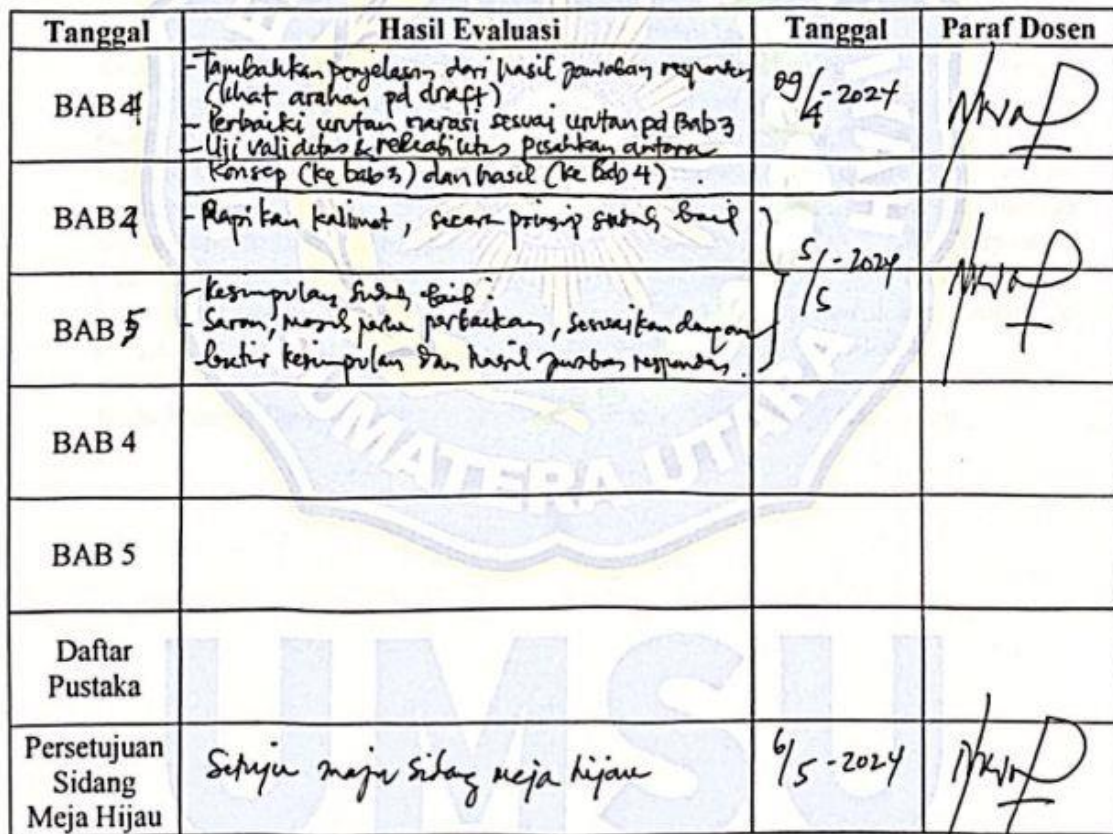 Tanggal Hasil Evaluasi Tanggal Paraf Dosen
BAB 4
- Tambahkan penjelasan dari hasil jawaban responden
(lihat arahan pd draft)
- Perbaiki urutan narasi sesuai urutan pd Bab 3
- Uji validitas & reliabilitas pisahkan antara
Konsep (ke bab 3) dan hasil (ke Bab 4).
09/4-2024
BAB 4
- Rapikan kalimat, secara prinsip sudah baik
5/5-2024
BAB 5
- Kesimpulan sudah baik.
- Saran, masih perlu perbaikan, sesuaikan dengan
butir kesimpulan dan hasil jawaban responden.
BAB 4
BAB 5
Daftar
Pustaka
Persetujuan
Sidang
Meja Hijau
Setuju maju sidang meja hijau
6/5-2024
SUMATERA UTARA
UMSU